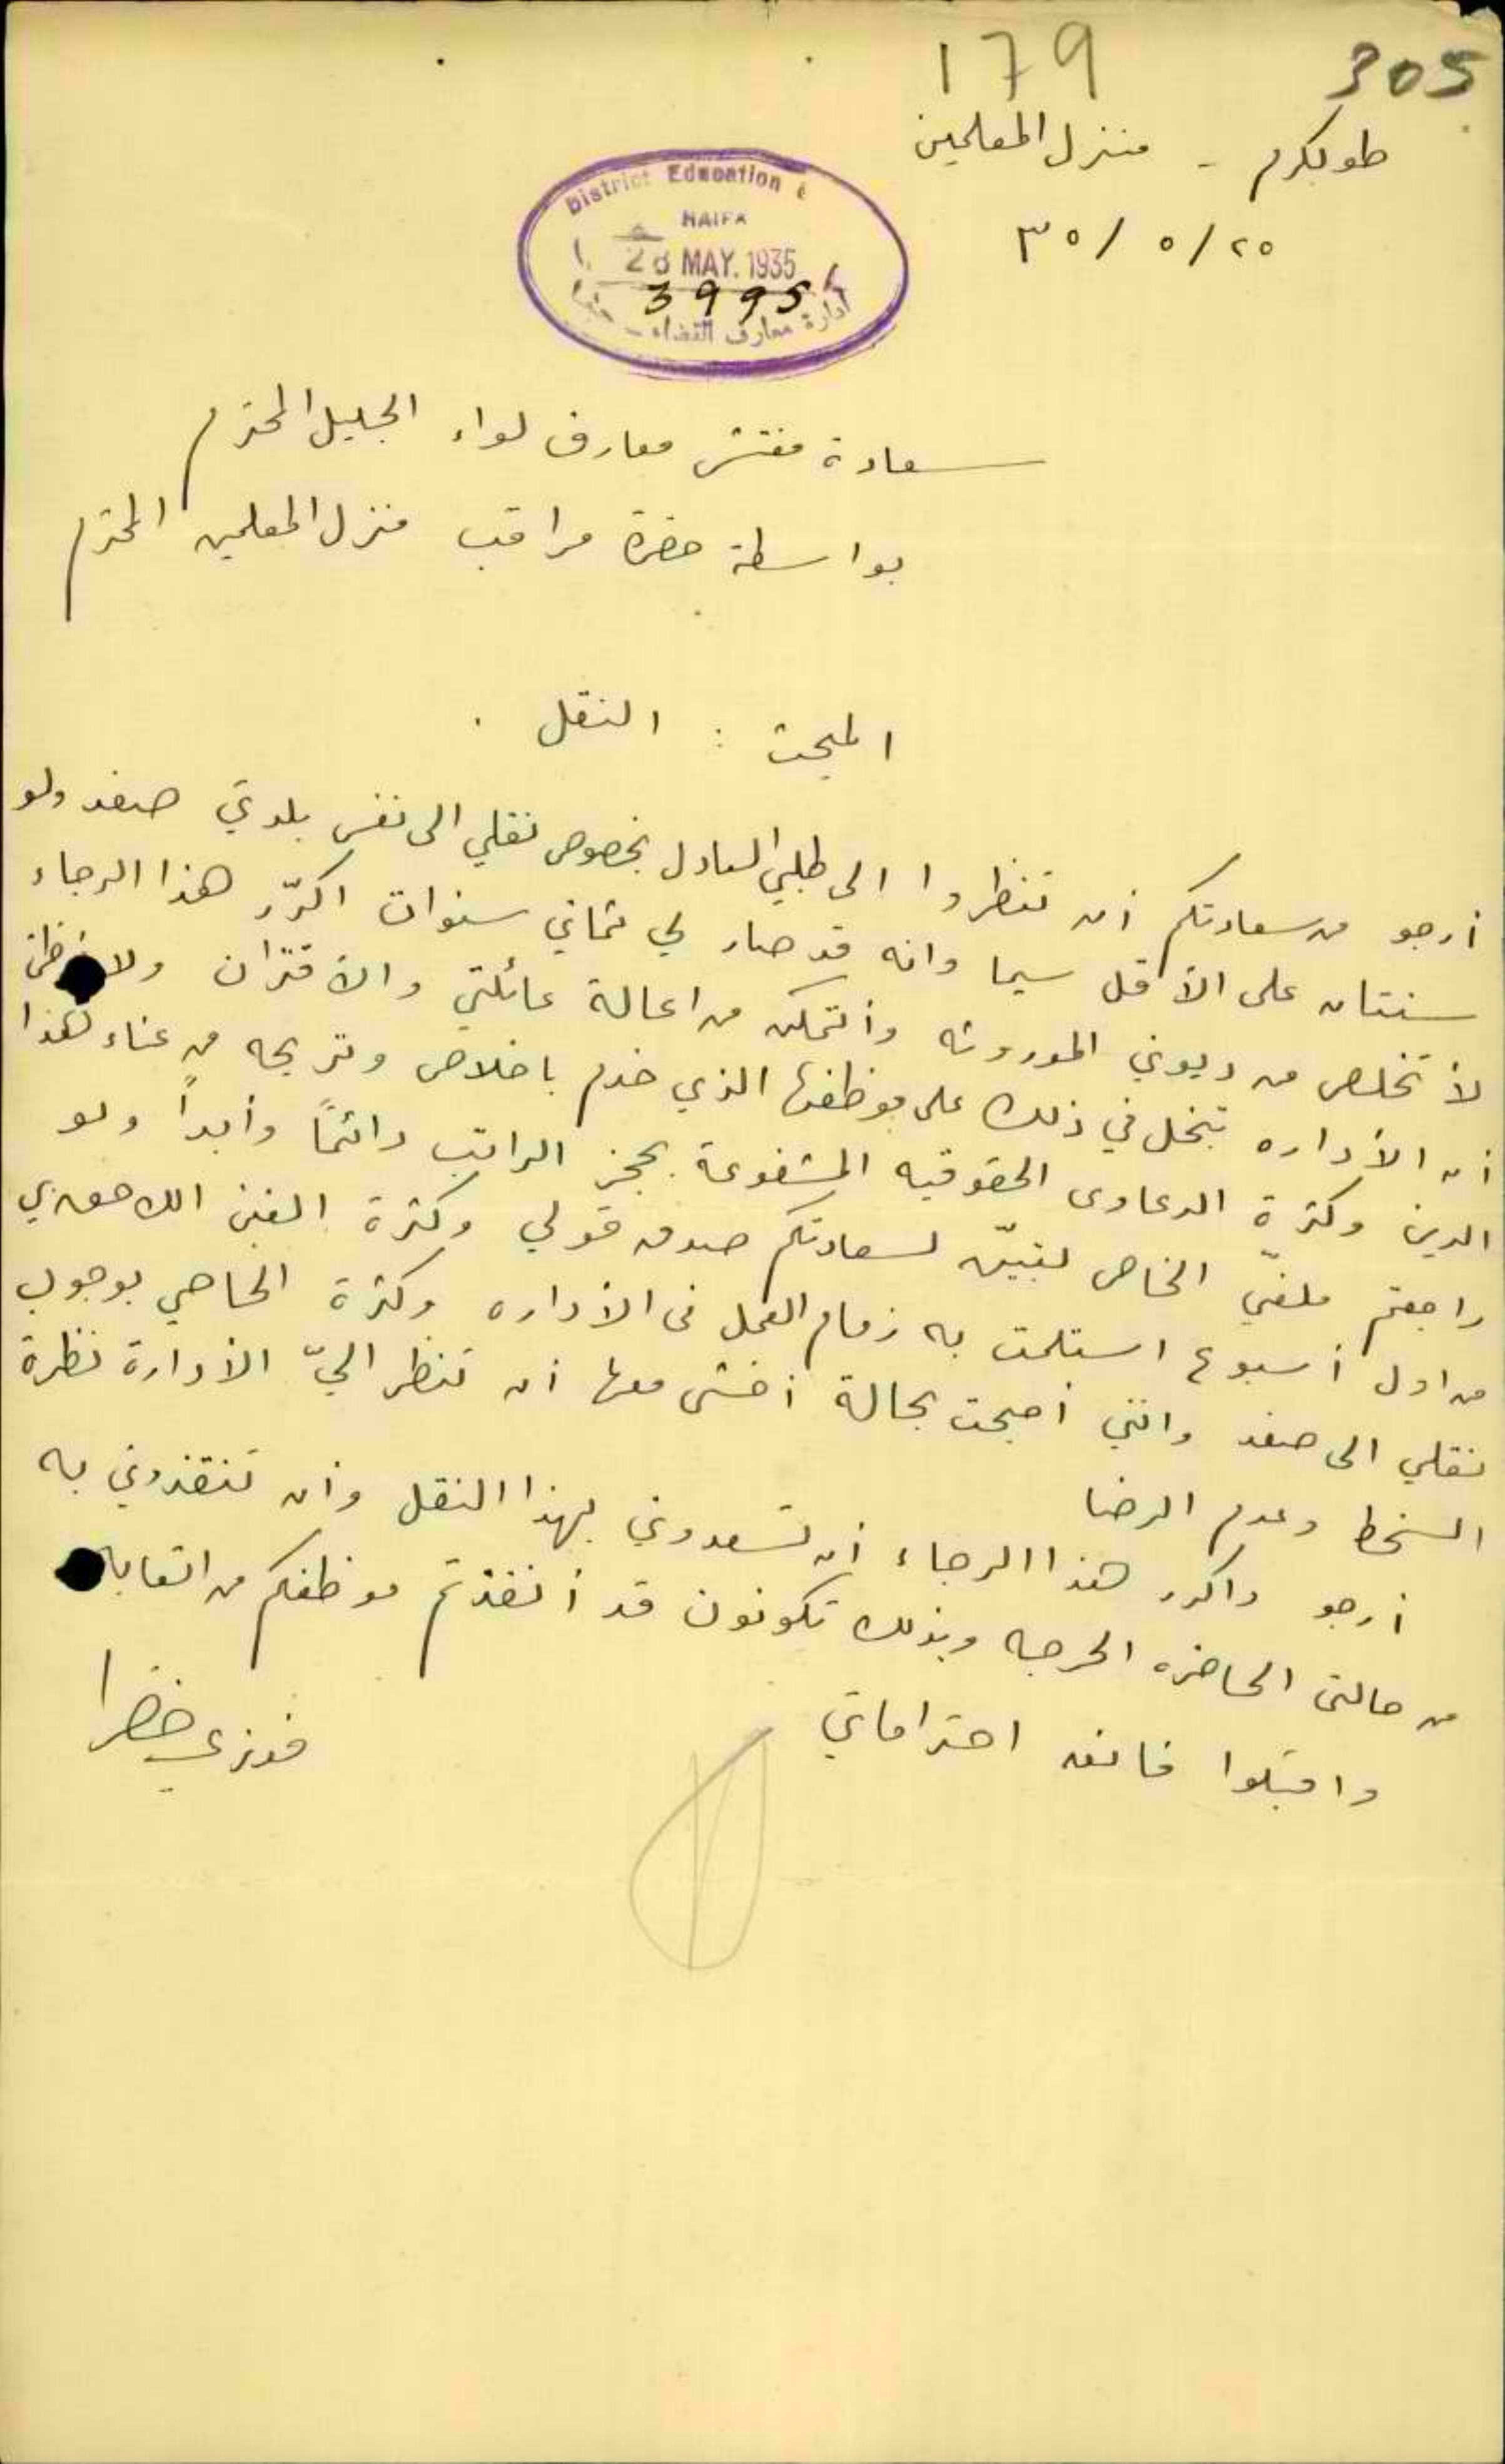 179 305
طولكرم - منزل المعلمين
٢٥/ ٥/ ٣٥
District Education
HAIFA
28 MAY. 1935
3995
ادارة معارف القضاء - حيفا
سعادة مفتش معارف لواء الجليل المحترم
بواسطة حضرة مراقب منزل المعلمين المحترم
المبحث : النقل .
أرجو من سعادتكم أن تنظروا الى طلبي العادل بخصوص نقلي الى نفس بلدتي صفد ولو
سنتان على الأقل سيما وانه قد صار لي ثماني سنوات اكرّر هذا الرجاء
لأتخلص من ديوني الموروثه وأتمكن من اعالة عائلتي والاقتران ولا أظن
أن الأداره تبخل في ذلك على موظفها الذي خدم باخلاص وتريحه من عناء هذا
الدين وكثرة الدعاوى الحقوقيه المشفوعة بحجز الراتب دائماً وأبداً ولو
راجعتم ملفّي الخاص لتبيّن لسعادتكم صدق قولي وكثرة الغبن اللاحق بي
من اول أسبوع استلمت به زمام العمل في الأداره وكثرة الحاحي بوجوب
نقلي الى صفد وانني أصبحت بحالة أخشى معها أن تنظر اليّ الأدارة نظرة
السخط وعدم الرضا
أرجو واكرر هذا الرجاء أن تسعدوني بهذا النقل وأن تنقذوني به
من حالتي الحاضره الحرجه وبذلك تكونون قد أنقذتم موظفكم من اتعابه
واقبلوا فائق احتراماتي
فوزي خضرا